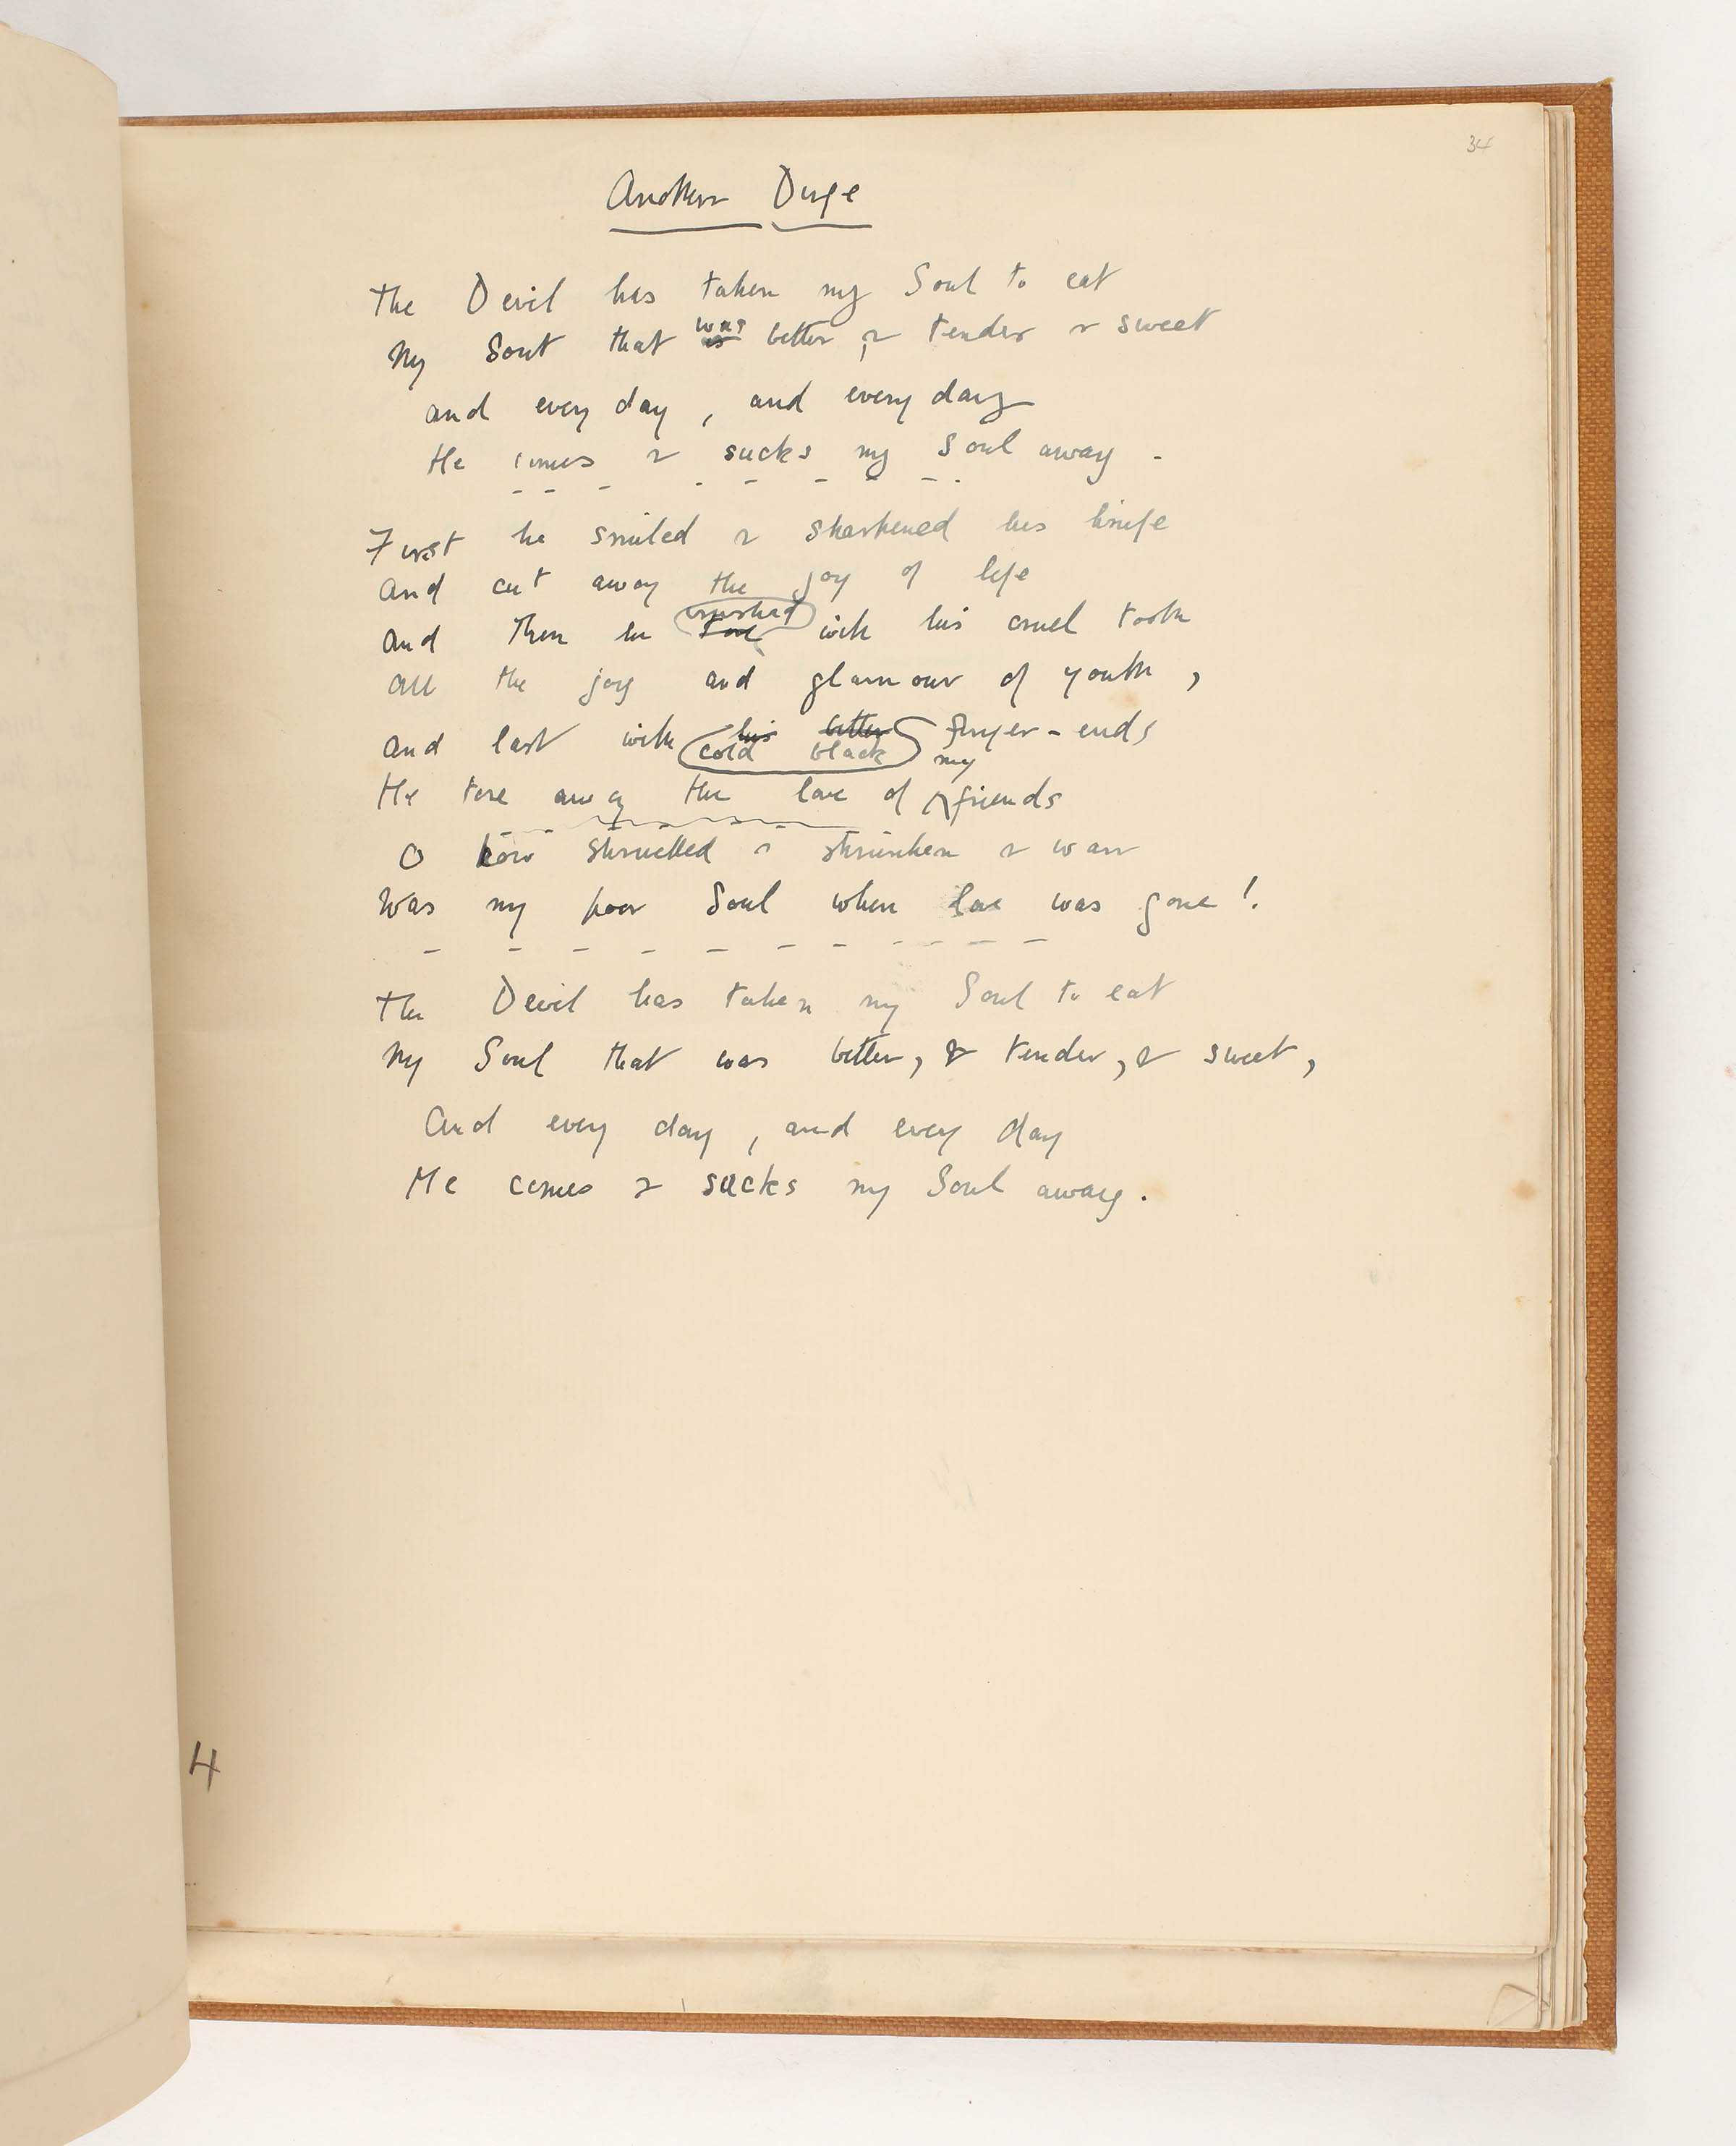 34
Another Dirge
The Devil has taken my Soul to eat
My Soul that was better, & tender & sweet
and every day, and every day
He comes & sucks my Soul away -
First he smiled & sharpened his knife
And cut away the joy of life
And then he crushed with his cruel tooth
All the joy and glamour of youth,
And last with his bitter finger-ends
cold black
He tore away the love of my friends
O how shrivelled & shrunken & wan
Was my poor Soul when love was gone!
The Devil has taken my Soul to eat
My Soul that was bitter, & tender, & sweet,
And every day, and every day
He comes & sucks my Soul away.
4